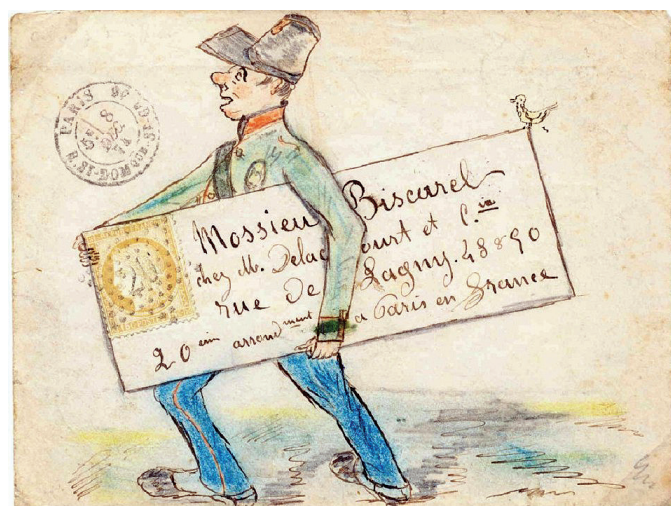 PARIS
8
20
Mossieu Biscarel
chez M. Delacourt et Cie
rue de Lagny. 48 & 50
20eim arrondment a Paris en France